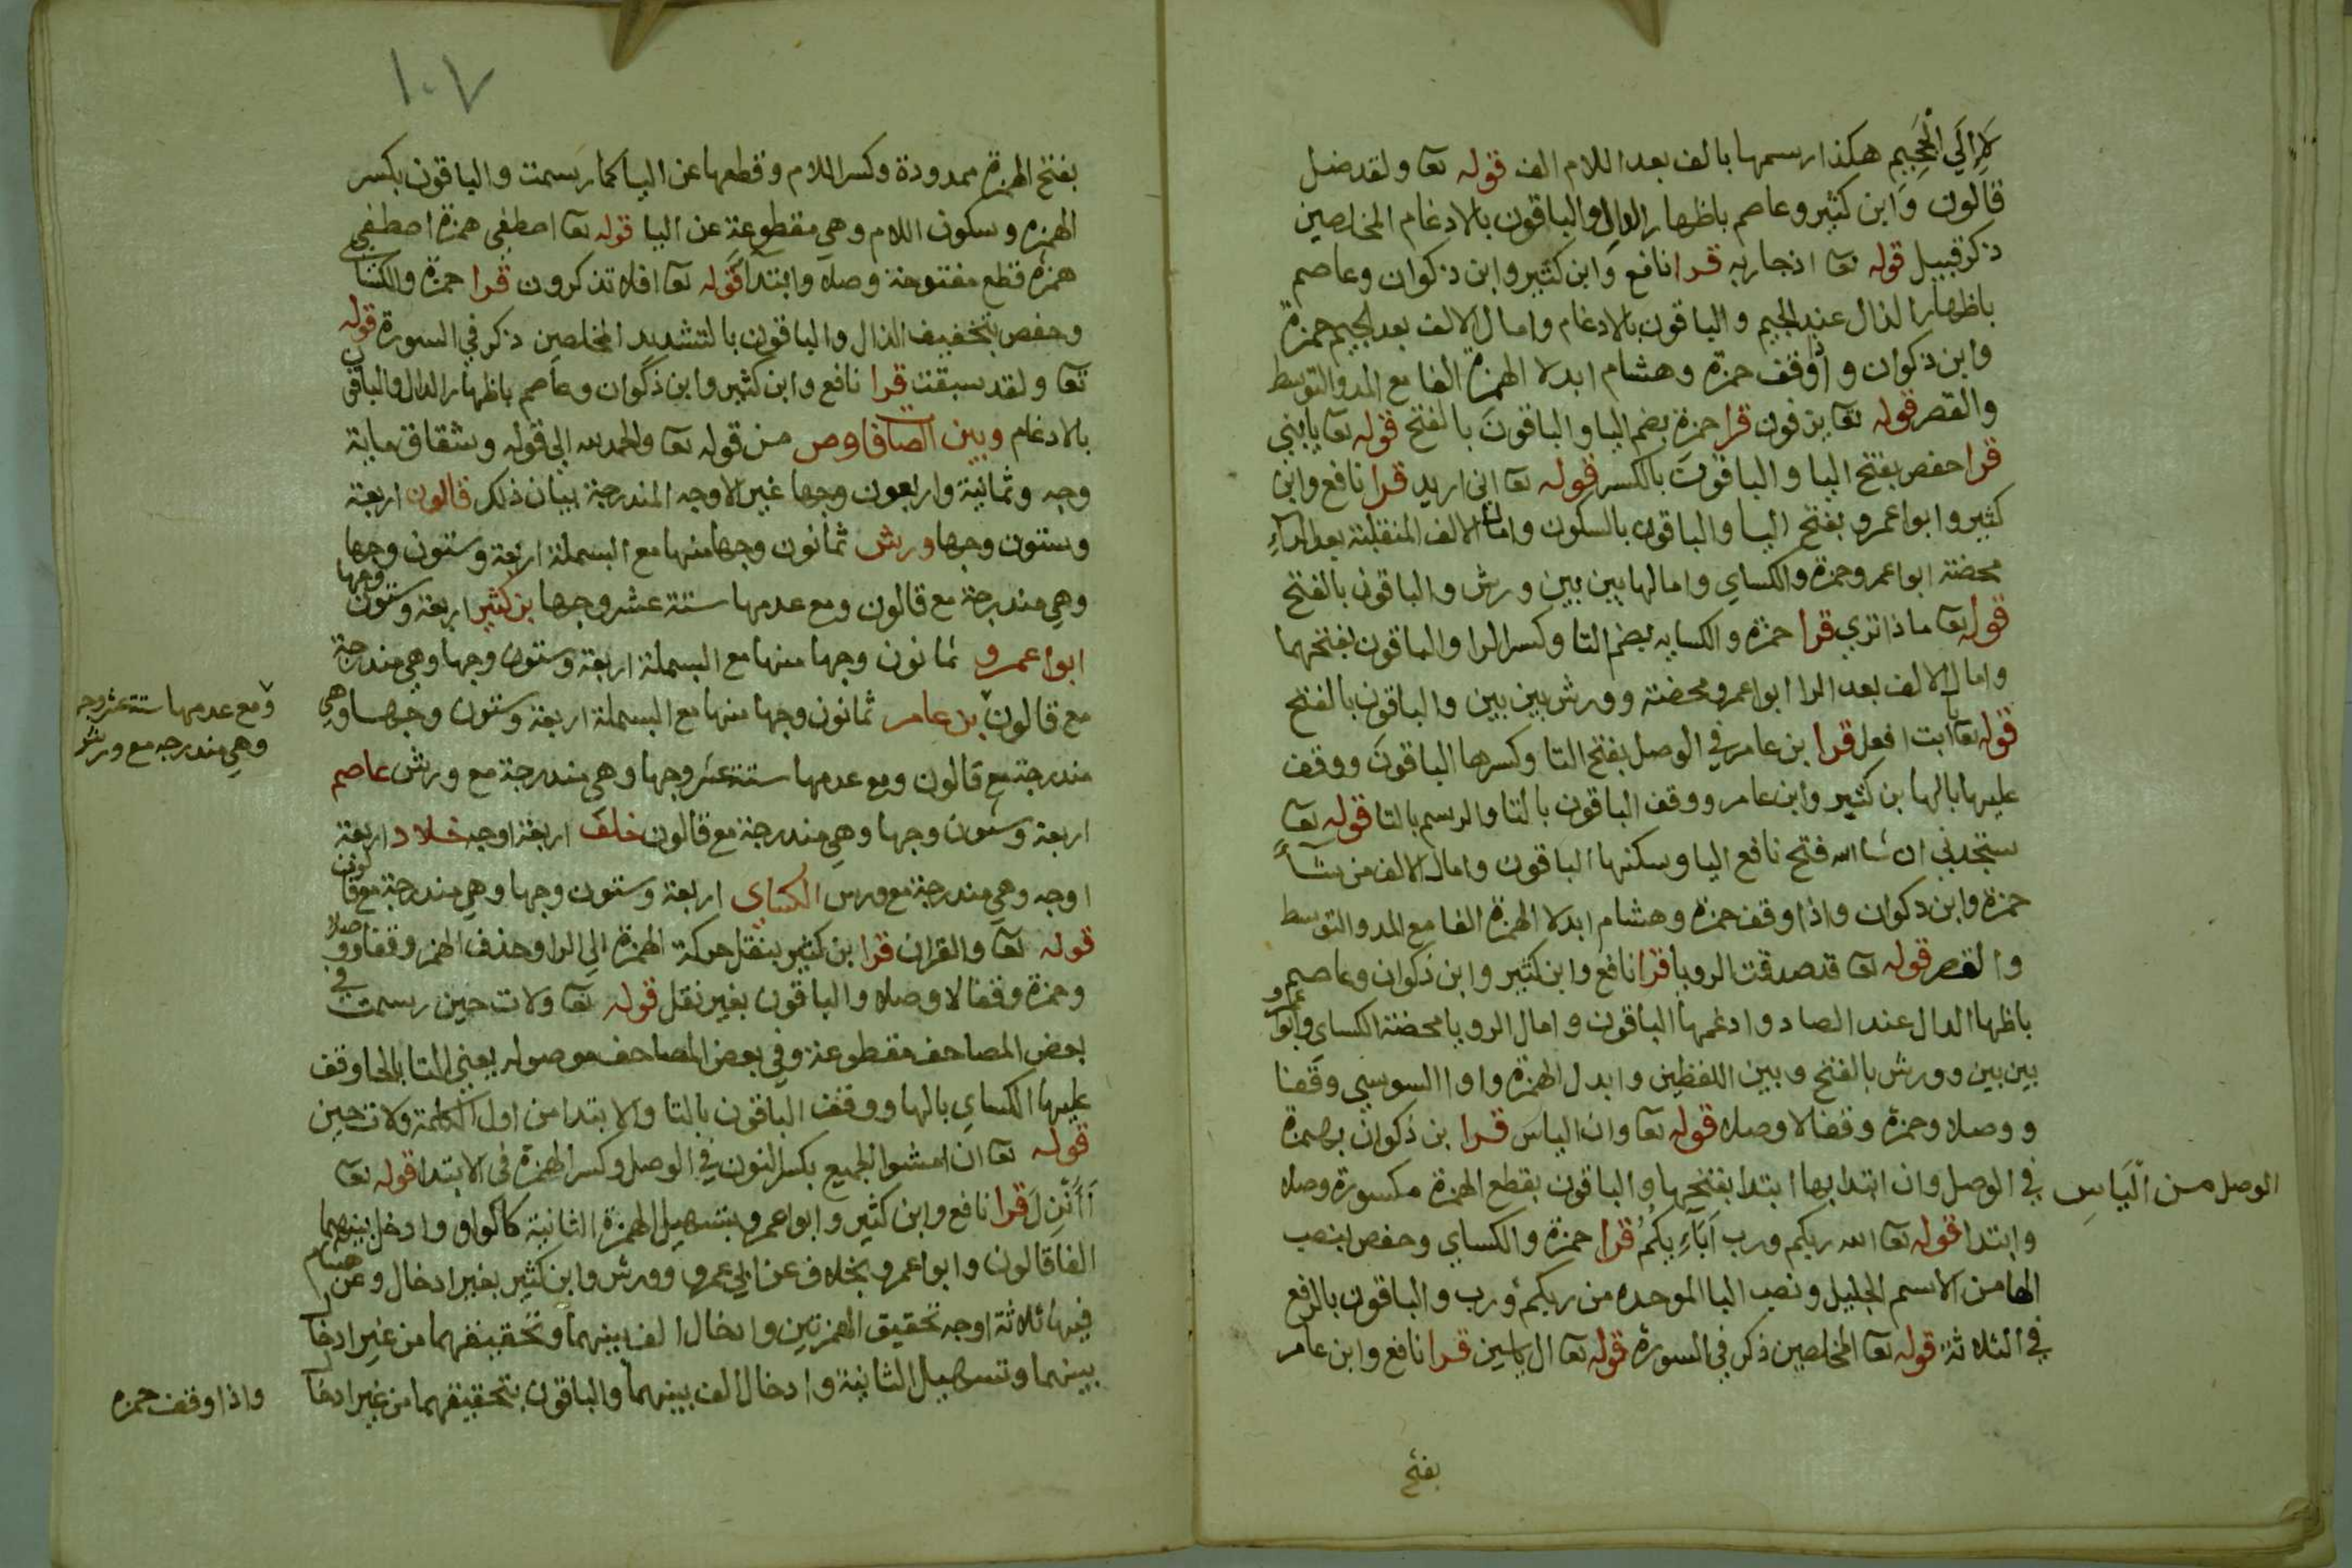 لا إلَي الْجَحِيم هكذا رسمها بالف بعد اللام الف قوله تعا ولقد ضل
قالون وابن كثير وعاصم باظهار الدال والباقون بالادغام المخلصين
ذكر قبيل قوله تعا اذ جا ربه قرا نافع وابن كثير وابن ذكوان وعاصم
باظهار الذال عند الجيم والباقون بالادغام وامال الالف بعد الجيم حمزة
وابن ذكوان واذا وقف حمزة وهشام ابدلا الهمزة الفا مع المد والتوسط
والقصر قوله تعا يزفون قرا حمزة بضم اليا والباقون بالفتح قوله تعا يابني
قرا حفص بفتح اليا والباقون بالكسر قوله تعا اني اريد قرا نافع وابن
كثير وابوا عمرو بفتح اليا والباقون بالسكون وامال الالف المنقلبة بعد الراء
محضة ابوا عمرو وحمزة والكساي وامالها بين بين ورش والباقون بالفتح
قوله تعا ماذا تري قرا حمزة والكسايه بضم التا وكسر الرا والباقون بفتحهما
وامال الالف بعد الرا ابوا عمرو محضة وورش بين بين والباقون بالفتح
قوله تعا يا ابت افعل قرا بن عامر في الوصل بفتح التا وكسرها الباقون ووقف
عليها بالها بن كثير وابن عامر ووقف الباقون بالتا والرسم بالتا قوله تعا
ستجدني ان شا الله فتح نافع اليا وسكنها الباقون وامال الالف من شآء
حمزة وابن ذكوان واذا وقف حمزة وهشام ابدلا الهمزة الفا مع المد والتوسط
والقصر قوله تعا قد صدقت الرويا قرا نافع وابن كثير وابن ذكوان وعاصم
باظها الدال عند الصاد وادغمها الباقون وامال الرويا محضة الكساي وابوا عمرو
بين بين وورش بالفتح وبين اللفظين وابدل الهمزة واوا السوسي وقفا
ووصلا وحمزة وقفا لا وصلا قوله تعا وان الياس قرا بن ذكوان بهمزة
الوصل من الّيَاسِ في الوصل وان ابتدا بها ابتدا بفتحها والباقون بقطع الهمزة مكسورة وصلا
وابتدا قوله تعا الله ربكم ورب اَبَآءِيكُمُ قرا حمزة والكساي وحفص بنصب
الها من الاسم الجليل ونصب البا الموحده من ربكم ورب والباقون بالرفع
في الثلاثة قوله تعا المخلصين ذكر في السورة قوله تعا ال ياسين قرا نافع وابن عامر
بفتح
١٠٧
بفتح الهمزة ممدودة وكسر اللام وقطعها عن اليا كما رسمت والباقون بكسر
الهمزه وسكون اللام وهي مقطوعة عن اليا قوله تعا اصطفي همزة اصطفي
همزة قطع مفتوحة وصلا وابتدآ قوله تعا افلا تذكرون قرا حمزة والكساي
وحفص بتخفيف الذال والباقون بالتشديد المخلصين ذكر في السورة قوله
تعا ولقد سبقت قرا نافع وابن كثير وابن ذكوان وعاصم باظهار الدال والباقون
بالادغام وبين الصافا وص من قوله تعا والحمد لله إلي قوله وشقاق ماية
وجه وثمانية واربعون وجها غير الاوجه المندرجة بيان ذلك قالون اربعة
وستون وجها ورش ثمانون وجها منها مع البسملة اربعة وستون وجها
وهي مندرجة مع قالون ومع عدمها ستة عشر وجها بن كثير اربعة وستون وجها
ابوا عمرو ثمانون وجها منها مع البسملة اربعة وستون وجها وهي مندرجة
مع قالون بن عامر ثمانون وجها منها مع البسملة اربعة وستون وجها وهي
ومع عدمها ستة عشر وجه
وهي مندرجه مع ورش
مندرجة مع قالون ومع عدمها ستة عشر وجها وهي مندرجة مع ورش عاصم
اربعة وستون وجها وهي مندرجة مع قالون خلف اربعة اوجه خلاد اربعة
اوجه وهي مندرجة مع ورس الكساي اربعة وستون وجها وهي مندرجة مع قالون
قوله تعا والقران قرا ابن كثير بنقل حركة الهمزة الي الرا وحذف الهمز وقفا ووصلا
وحمزة وقفا لا وصلا والباقون بغير نقل قوله تعا ولات حين رسمت في
بعض المصاحف مقطوعة وفي بعض المصاحف موصوله يعني التا بالحا وقف
عليها الكساي بالها ووقف الباقون بالتا والابتدا من اول الكلمة ولات حين
قوله تعا ان امشوا الجميع بكسر النون في الوصل وكسر الهمزة في الابتدا قوله تعا
أَأُنْزِلَ قرا نافع وابن كثير وابوا عمرو بتسهيل الهمزة الثانية كالواو وادخل بينهما
الفا قالون وابوا عمرو بخلاف عن ابي عمرو وورش وابن كثير بغير ادخال وعن هشام
فيها ثلاثة اوجه تحقيق الهمزتين وادخال الف بينهما وتحقيقهما من غير ادخال
بينهما وتسهيل الثانية وادخال الف بينهما والباقون بتحقيقهما من غير ادخال
واذا وقف حمزه